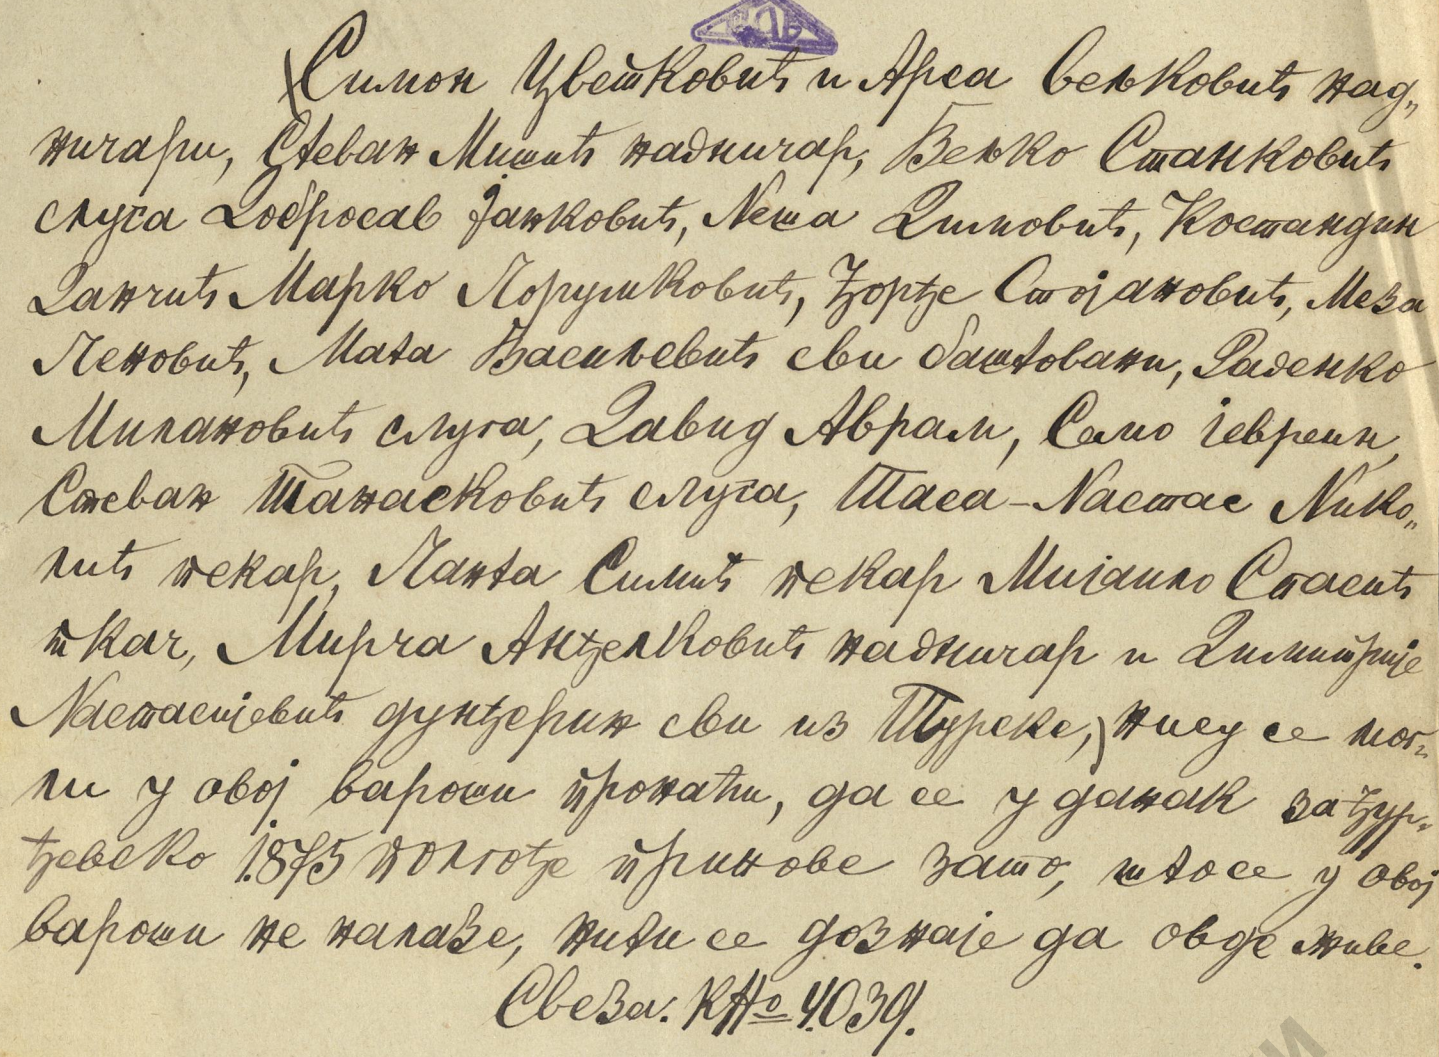 Симон Цветковић и Арса Вељковић над„
ничари, Стеван Мишић надничар, Вељко Станковић
слуга Добросав Јанковић, Неша Димовић, Костандин
Данчић Марко Порушковић, Ђорђе Стојановић, Меза
Пеновић, Мата Васиљевић сви баштовани, Раденко
Милановић слуга, Давид Аврам, Само јевреин,
Стеван Танасковић слуга, Таса-Настас Нико„
лић пекар, Панта Симић пекар Мијаило Спасић
ткач, Мирча Анђелковић надничар и Димитрије
Настасијевић дунђерин сви из Турске,) нису се мог„
ли у овој вароши пронаћи, да се у данак за Ђур„
ђевско 1875 полгође принове зато, што се у овој
вароши не налазе, нити се дознаје да овде живе.
Свеза. КНо 4.039.